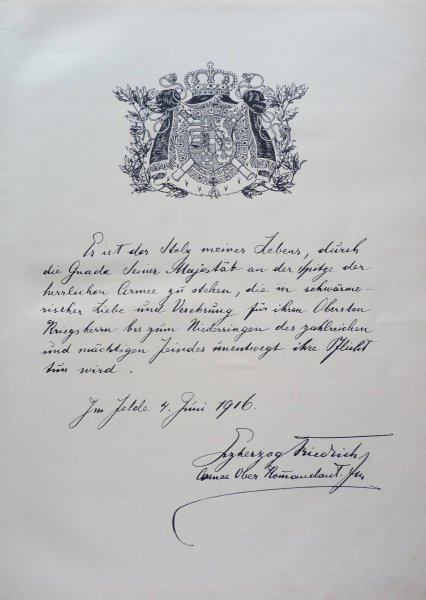 Es ist der Stolz meines Lebens, durch
die Gnade Seiner Majestät an der Spitze der
herrlichen Armee zu stehen, die in schwärme-
rischer Liebe und Verehrung für ihren Obersten
Kriegsherrn bis zum Niederringen des zahlreichen
und mächtigen Feindes unentwegt ihre Pflicht
tun wird.
Im Felde 4. Juni 1916.
Erzherzog Friedrich
Armee Ober Kom̄andant.